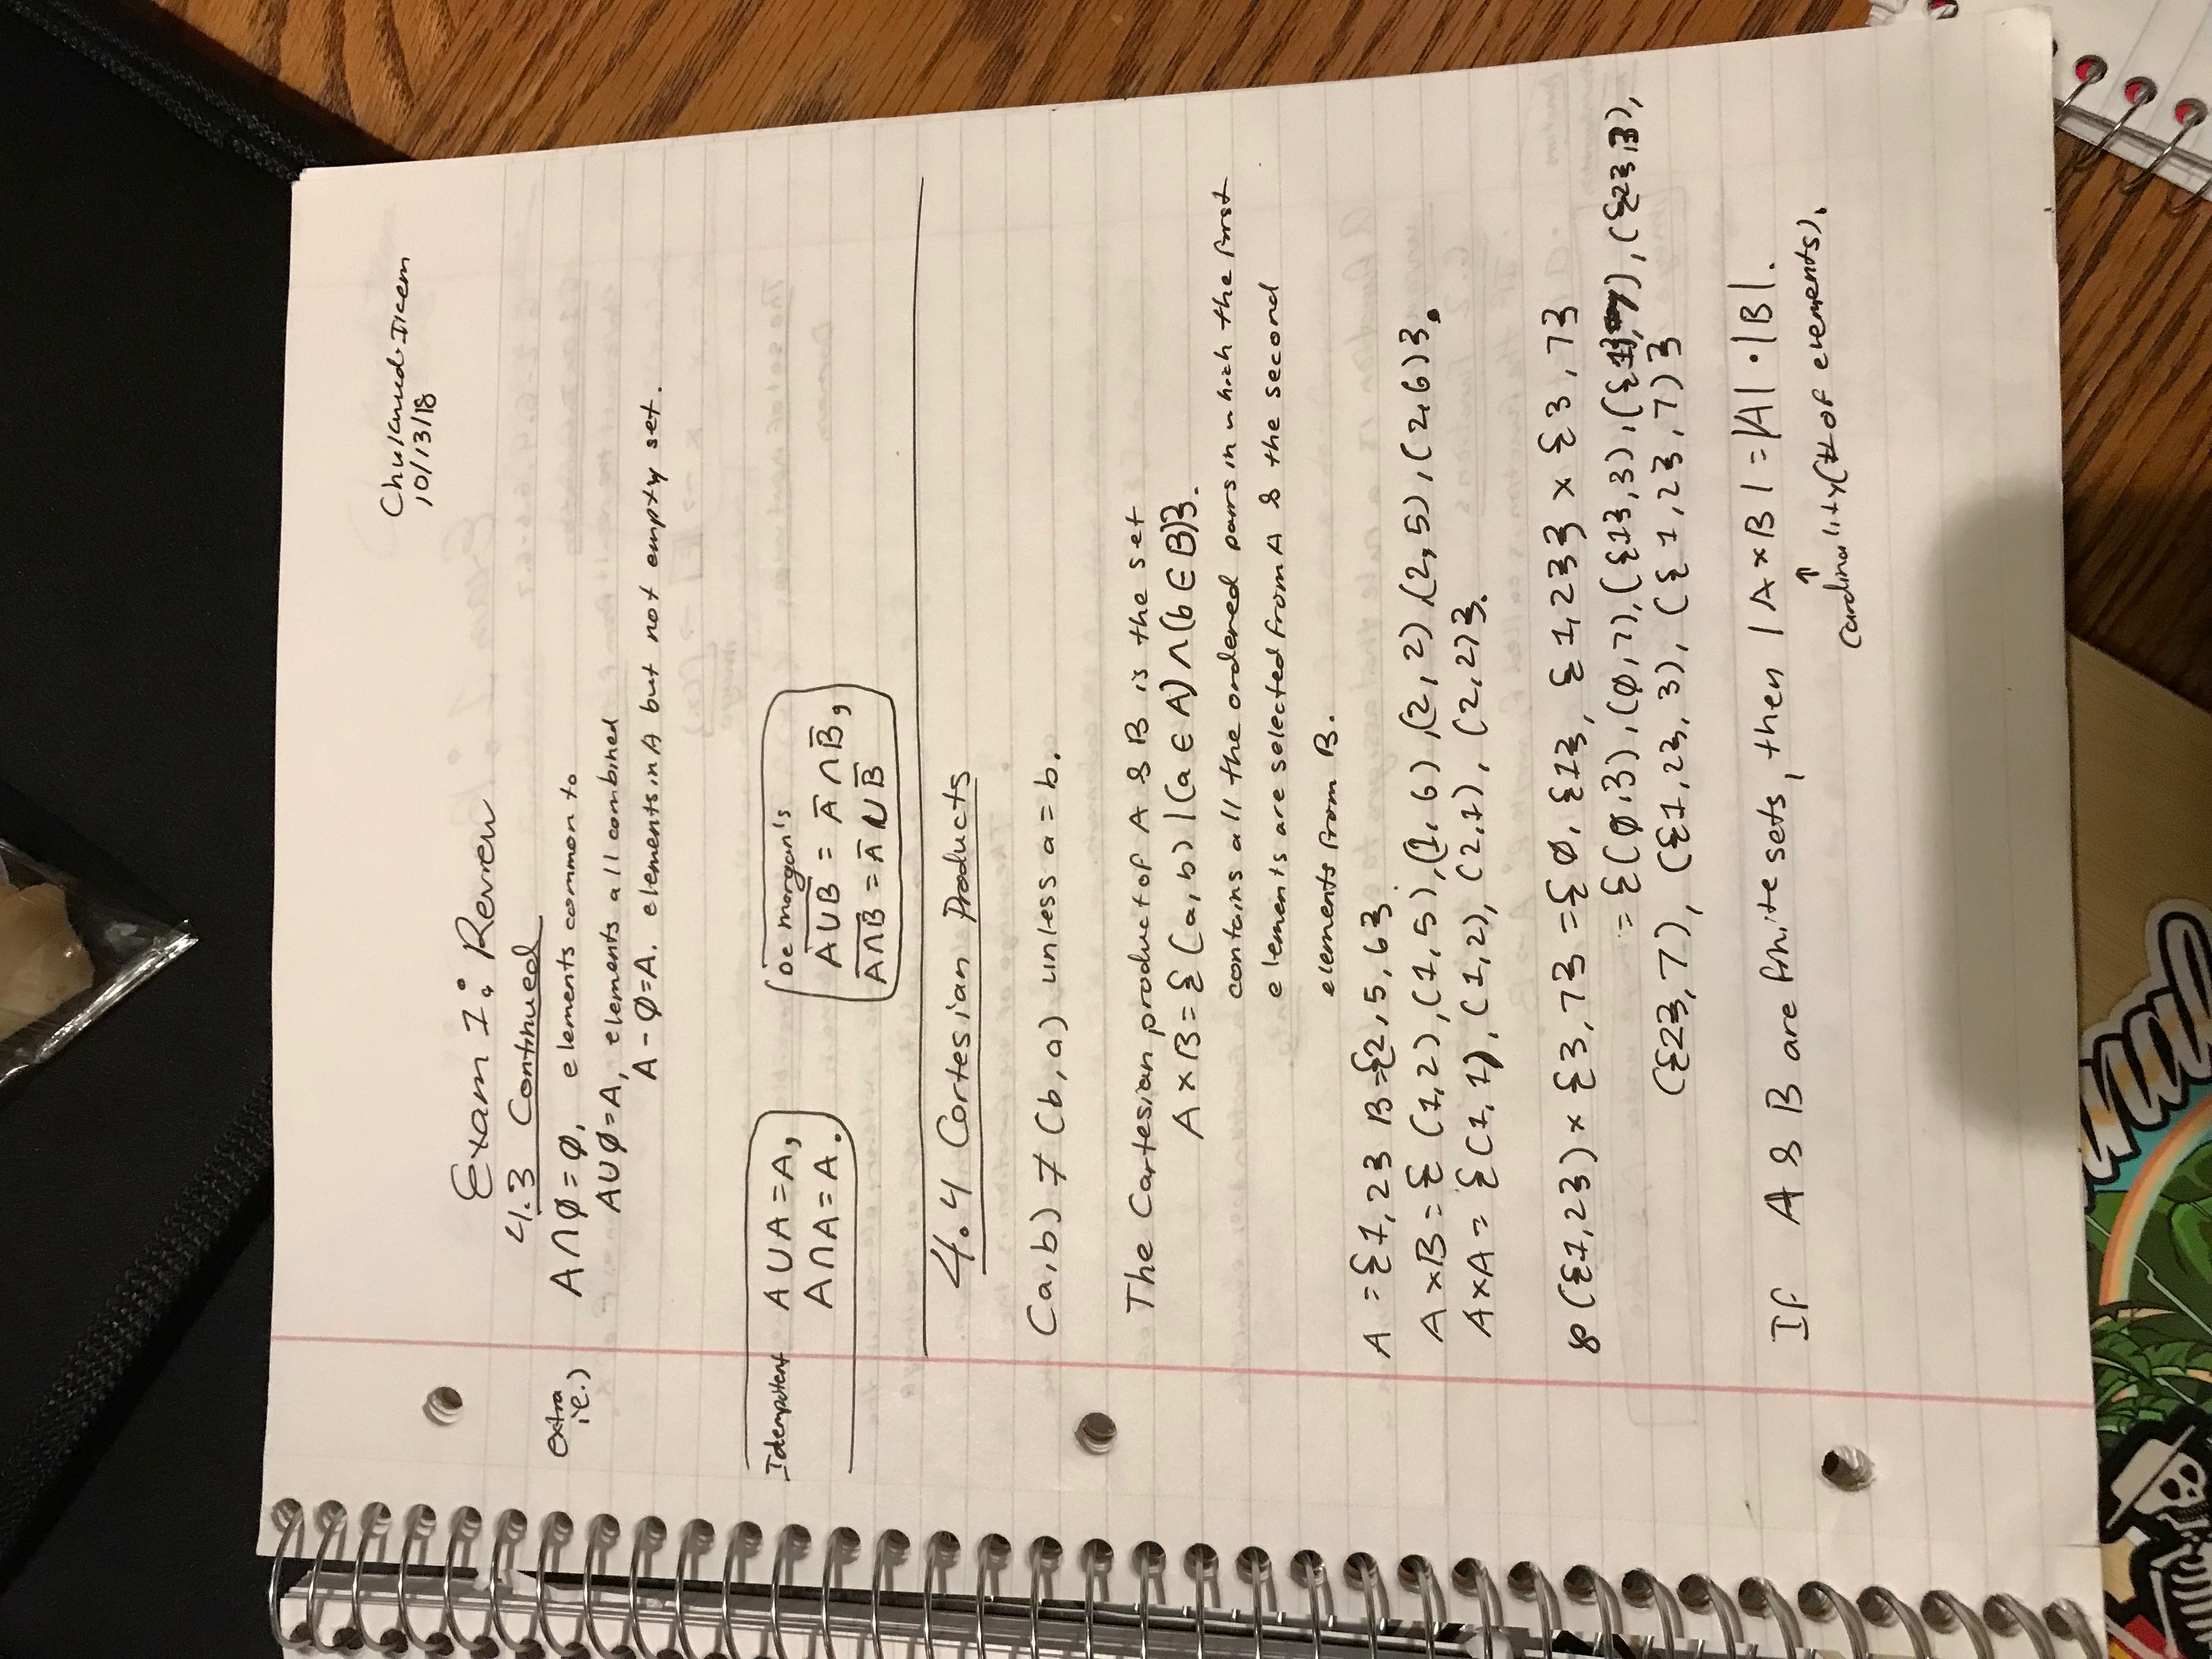 10/13/18
Exam 1: Review
4.3 Continued
extra
i.e.)
A∩∅=∅, elements common to
A∪∅=A, elements all combined
A-∅=A. elements in A but not empty set.
Idempotent A∪A=A,
A∩A=A.
De morgan's
A̅∪̅B̅ = A̅ ∩ B̅,
A̅∩̅B̅ = A̅ ∪ B̅
4.4 Cortesian Products
(a,b) ≠ (b,a) unless a=b.
The Cartesian product of A & B is the set
A×B={(a,b) |(a∈A)∧(b∈B)}.
contains all the ordered pairs in which the first
elements are selected from A & the second
elements from B.
A ={1,2} B={2,5,6}.
A×B={ (1,2),(1,5),(1,6),(2,2),(2,5),(2,6)}.
A×A= {(1,1), (1,2), (2,1), (2,2)}.
℘({1,2})× {3,7} ={∅, {1}, {1,2}} × {3,7}
={(∅,3),(∅,7),({1},3),({1},7),({2},3),
({2},7), ({1,2},3), ({1,2},7)}
If A & B are finite sets, then |A×B|=|A|·|B|.
↑
Cardinality(# of elements).